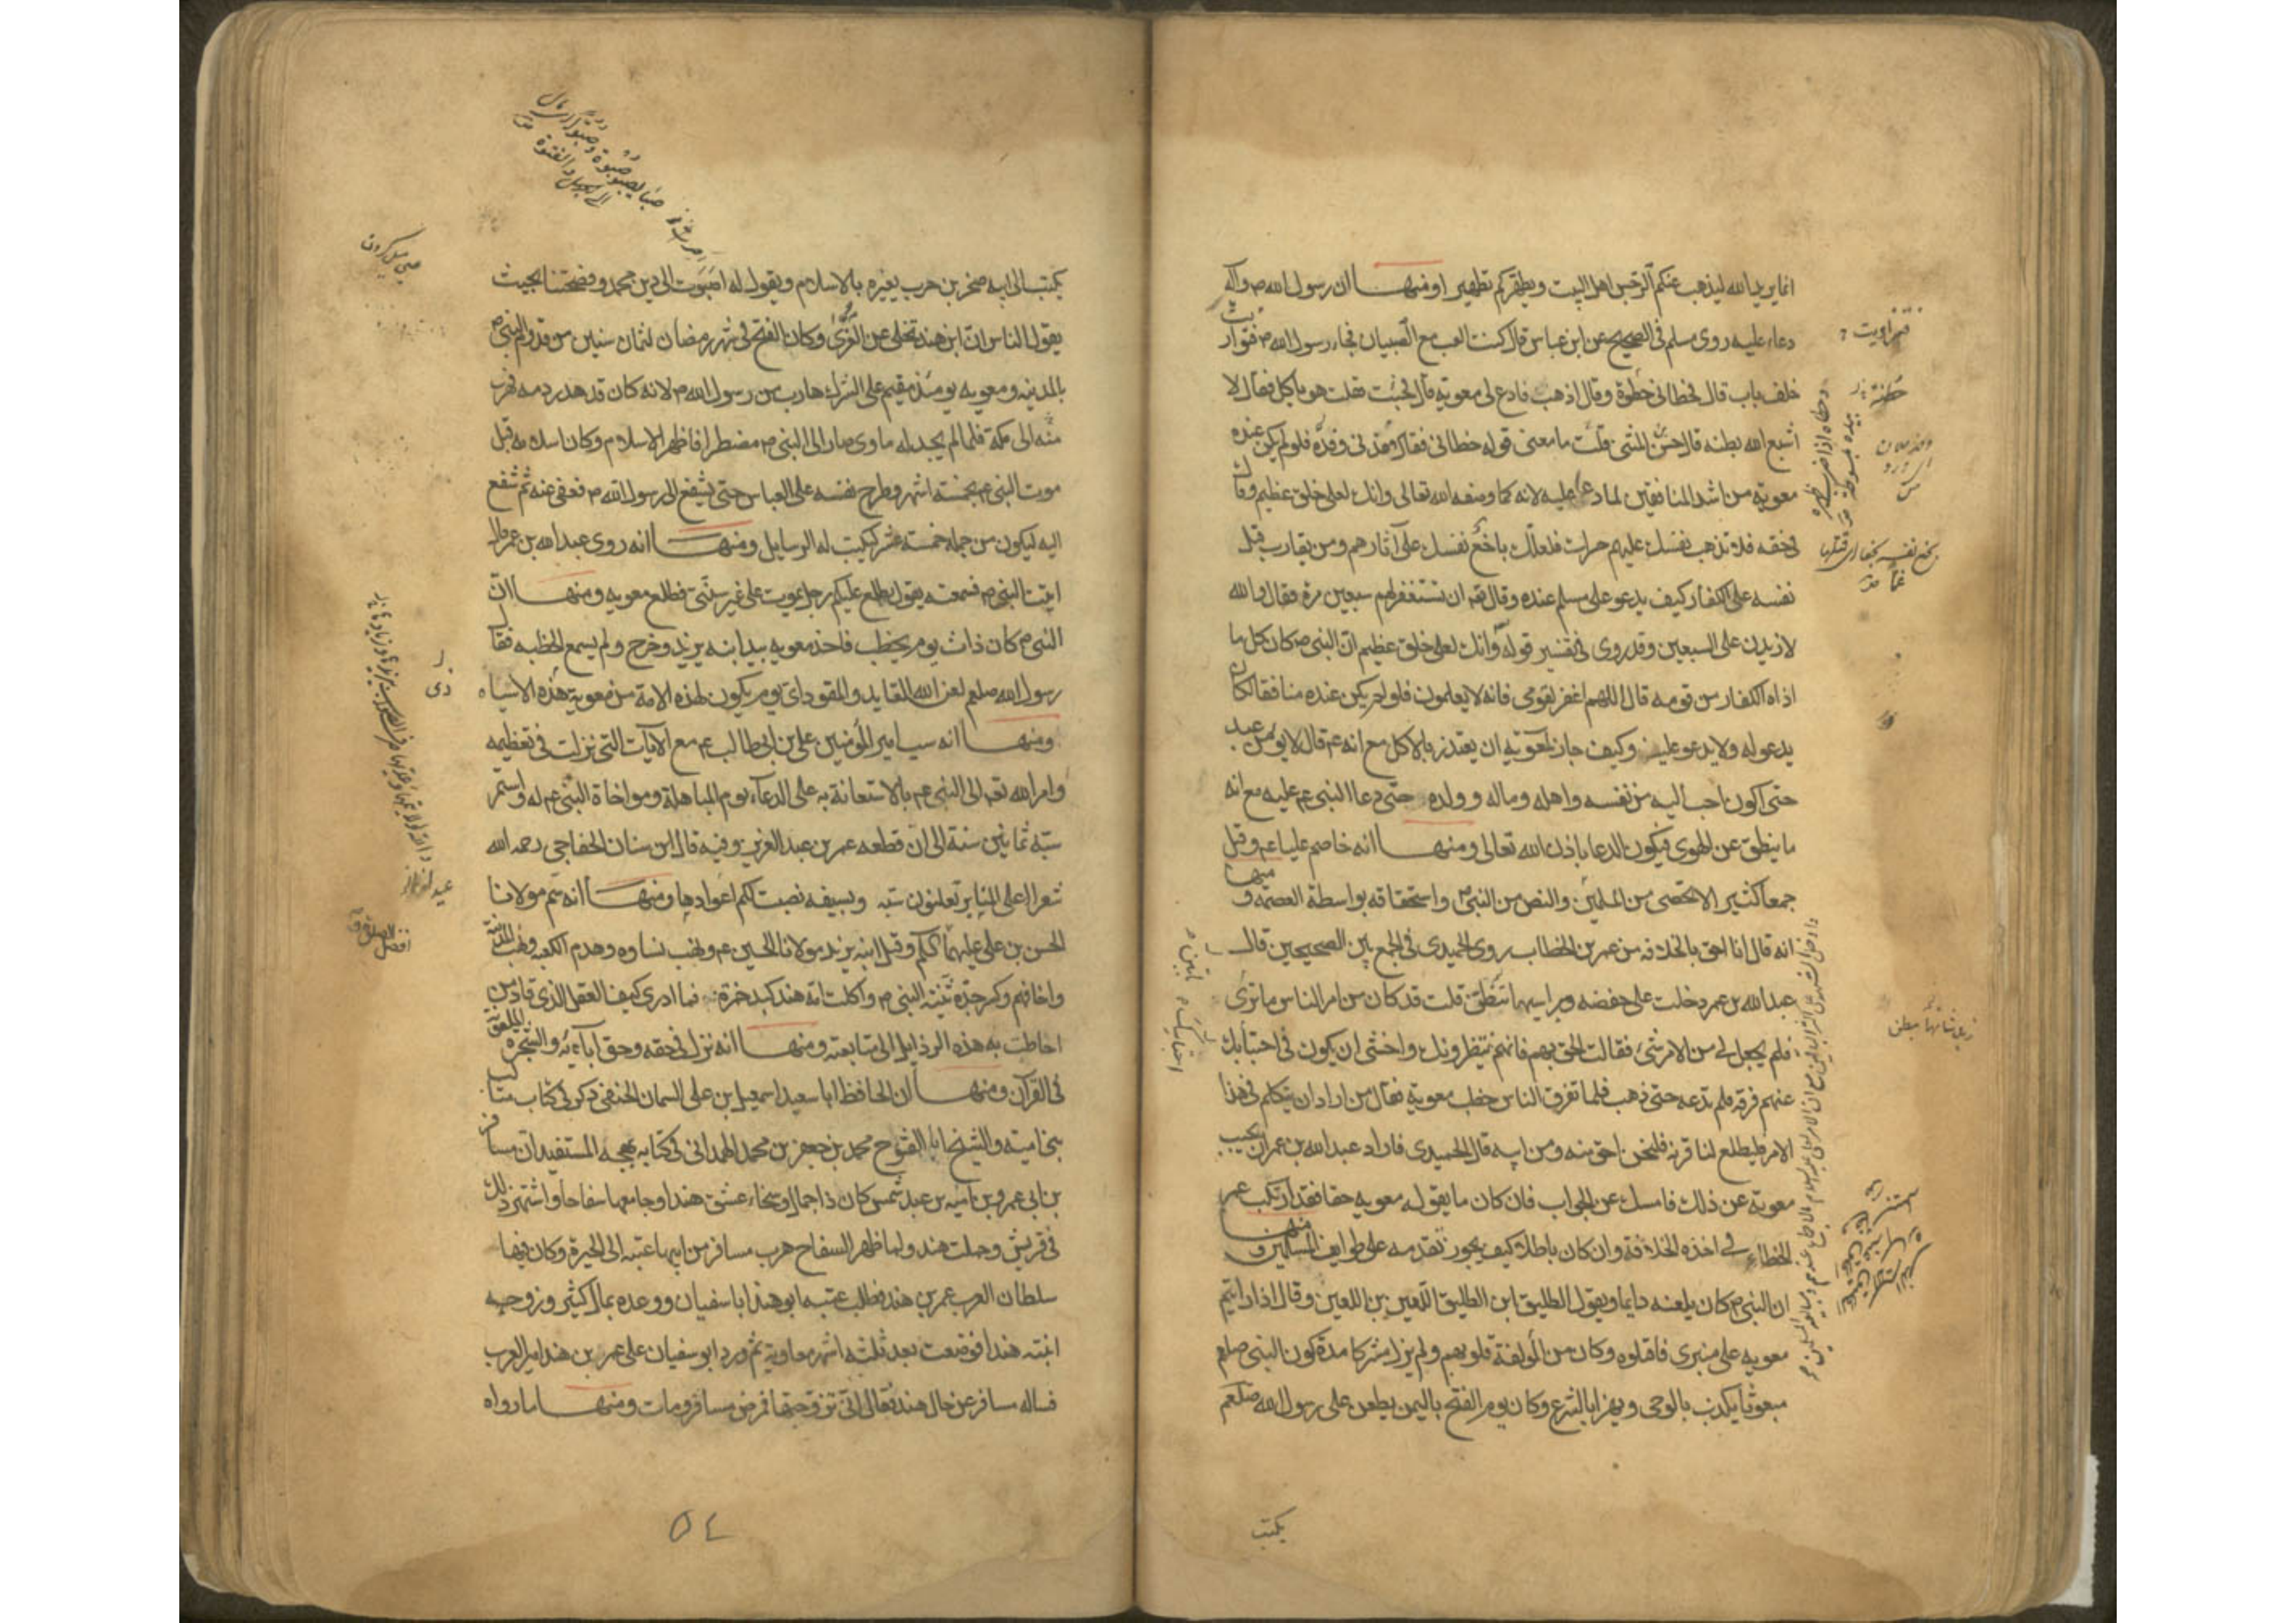 انما يريد الله ليذهب عنكم الرجس اهل البيت ويطهركم تطهيرا ومنها ان رسول الله ص وآله
دعاء عليه روى مسلم فى الصحيح عن ابن عباس قال كنت العب مع الصبيان فجاء رسول الله ص فتواريت
خلف باب قال فحطانى حطوة وقال اذهب فادع لى معوية قال فجئت فقلت هو ياكل فقال لا
اشبع الله بطنه قال حسن بن المثنى قلت ما معنى قوله حطانى فقال وقدنى وقدة فلو لم يكن عنده
معوية من اشد المنافقين لما دعا عليه لانه كما وصفه الله تعالى وانك لعلى خلق عظيم وقال
فى حقه فلا تذهب نفسك عليهم حرات فلعلك باخع نفسك على آثارهم ومن يقارب قتل
نفسه على الكفار كيف يدعو على مسلم عنده وقال تعه ان تستغفر لهم سبعين مرة فقال والله
لازيدن على السبعين وقد روى فى تفسير قوله وانك لعلى خلق عظيم ان النبى ص كان كل ما
اذاه الكفار من قومه قال اللهم اغفر لقومى فانه لا يعلمون فلو لم يكن عنده منافقا لكان
يدعو له ولا يدعو عليه وكيف جاز لمعوية ان يعتذر بالاكل مع انه عم قال لا يومن عبد
حتى اكون احب اليه من نفسه واهله وماله وولده حتى دعا النبى عم عليه مع انه
ما ينطق عن الهوى فيكون الدعا باذن الله تعالى ومنها انه خاصم عليا عم وقتل
جمعا كثيرا لا تحصى من المسلمين والنص من النبى ص واستحقاقه بواسطة العصمة و منها
انه قال انا احق بالخلافة من عمر بن الخطاب روى الحميدى فى الجمع بين الصحيحين قال
عبد الله بن عمر دخلت على حفصه وبراسها تنطق قلت قد كان من امر الناس ما ترى
فلم يجعل لى من الامر شئ فقالت الحق بهم فانهم ينتظرونك واخشى ان يكون فى احتباك
عنهم فرقة فلم تدعه حتى ذهب فلما تفرق الناس خطب معوية فقال من اراد ان يتكلم فى هذا
الامر فليطلع لنا قرنه فلنحن احق منه ومن ابيه قال الحميدى فاراد عبد الله بن عمر ان يجيب
معوية عن ذلك فامسك عن الجواب فان كان ما يقوله معويه حقا فقد ارتكب عمر
الخطاء فى اخذه الخلافة وان كان باطلا كيف يجوز تقدمه على طوايف المسلمين و منها
ان النبى ص كان يلعنه دايما ويقول الطليق ابن الطليق اللعين بن اللعين وقال اذا رايتم
معويه على منبرى فاقتلوه وكان من المؤلفة قلوبهم ولم يزل مشركا مدة كون النبى صلعم
مبعوثا يكذب بالوحى ويهزا بالشرع وكان يوم الفتح باليمن يطعن على رسول الله صلعم
يكتب
يكتب الى ابيه صخر بن حرب يعيره بالاسلام ويقول له اصبوت الى دين محمد وفضحتنا بحيث
يقول الناس ان ابن هند تخلى عن العزى وكان الفتح فى شهر رمضان لثمان سنين من قدوم النبى ص
بالمدينه ومعويه يومئذ مقيم على الشرك هارب من رسول الله ص لانه كان قد هدر دمه فهرب
منه الى مكة فلما لم يجد له ماوى صار الى النبى ص مضطرا فاظهر الاسلام وكان اسلامه قبل
موت النبى عم بخمسة اشهر وطرح نفسه على العباس حتى يشفع الى رسول الله ص فعفى عنه ثم شفع
اليه ليكون من جملة خمسة عشر ليكتب له الرسايل ومنها انه روى عبد الله بن عمر قال
اتيت النبى ص فسمعته يقول يطلع عليكم رجل يموت على غير سنتى فطلع معويه ومنها ان
النبى ص كان ذات يوم يخطب فاخذ معويه بيد ابنه يزيد وخرج ولم يسمع الخطبه فقال
رسول الله صلعم لعن الله القايد والمقود اى يوم يكون لهذه الامة من معوية هذه الاشياه
ومنها انه سب امير المؤمنين على بن ابى طالب عم مع الآيات التى نزلت فى تعظيمه
وامر الله تعه الى النبى عم بالاستعانة به على الدعاء يوم المباهلة ومواخاة النبى عم له واستمر
سبه ثمانين سنة الى ان قطعه عمر بن عبد العزيز وفيه قال ابن سنان الخفاجى رحمه الله
شعر اعلى المنابر تعلنون سبه وبسيفه نصبت لكم اعوادها ومنها انه سم مولانا
الحسن بن على عليهما السلم وقتل ابنه يزيد مولانا الحسين عم ونهب نساوه وهدم الكعبه ونهب المدينة
واخافهم وكسر جده ثنية النبى ص واكلت امه هند كبد حمزة فما ادرى كيف العقل الذى قاد من
احاطت به هذه الرذايل الى متابعته ومنها انه نزل فى حقه وحق آبائه والشجرة الملعونة
فى القرآن ومنها ان الحافظ ابا سعيد اسمعيل بن على السمان الحنفى ذكر فى كتاب مثالب
بنى اميه والشيخ ابا الفتوح محمد بن جعفر بن محمد الهمدانى فى كتابه بهجة المستفيد ان مسافر
بن ابى عمرو بن اميه بن عبد شمس كان ذا جمال وسخاء عشق هندا وجامعها سفاحا واشتهر ذلك
فى قريش وحملت هند ولما ظهر السفاح هرب مسافر من ابيها عتبه الى الحيرة وكان فيها
سلطان العرب عمر بن هند فطلب عتبه ابو هند ابا سفيان ووعده بمال كثير وزوجه
ابنته هندا فوضعت بعد ثلثة اشهر معاوية ثم ورد ابو سفيان على عمر بن هند امير العرب
فساله مسافر عن حال هند فقال انى تزوجتها فمرض مسافر ومات ومنها ما رواه